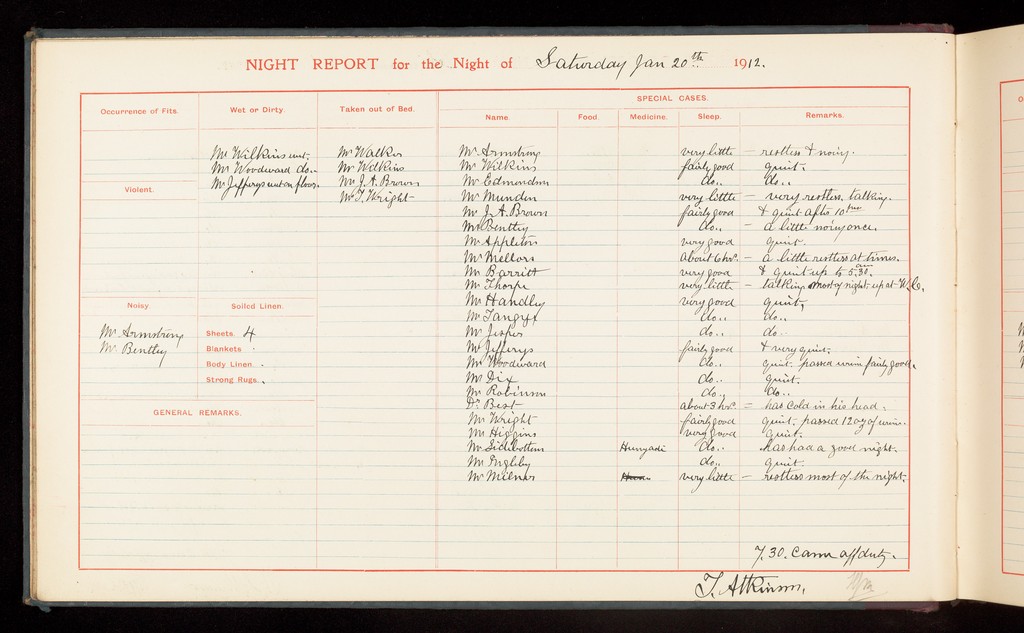 NIGHT REPORT for the Night of Saturday Jan 20th 1912.
Occurrence of Fits.
Wet or Dirty.
Mr Wilkins wet.
Mr Woodward do..
Mr Jefferys wet on floor.
Taken out of Bed.
Mr Walker
Mr Wilkins
Mr J. A. Brown
Mr T. Wright
Violent.
Noisy.
Mr Armstrong
Mr Bentley
Soiled Linen.
Sheets. 4
Blankets .
Body Linen. .
Strong Rugs. .
GENERAL REMARKS.
SPECIAL CASES.
Name. Food. Medicine. Sleep. Remarks.
Mr Armstrong very little — restless & noisy.
Mr Wilkins fairly good quiet.
Mr Edmondson do.. do..
Mr Munden very little — very restless, talking.
Mr J. A. Brown fairly good & quiet after 10
Mr Bentley do.. — a little noisy once.
Mr Appleton very good quiet.
Mr Mellors about 6 hrs. — a little restless at times.
Mr Barritt very good & quiet up to 5.30. am
Mr Thorpe very little — talking most of night up at W.C.
Mr Handley very good quiet,
Mr Tangye do.. do..
Mr Jesper do.. do..
Mr Jefferys fairly good & very quiet.
Mr Woodward do.. quiet. passed urine fairly good.
Mr Dix do.. quiet.
Mr Robinson do.. do..
Dr Best about 3 hrs. = has cold in his head.
Mr Wright fairly good quiet. passed 12 oz of urine.
Mr Higgins very good quiet.
Mr Sidebottom Hunyadi do.. has had a good night.
Mr Ingleby do.. quiet.
Mr Milner very little — restless most of the night.
7.30. Came off duty.
T. Atkinson.